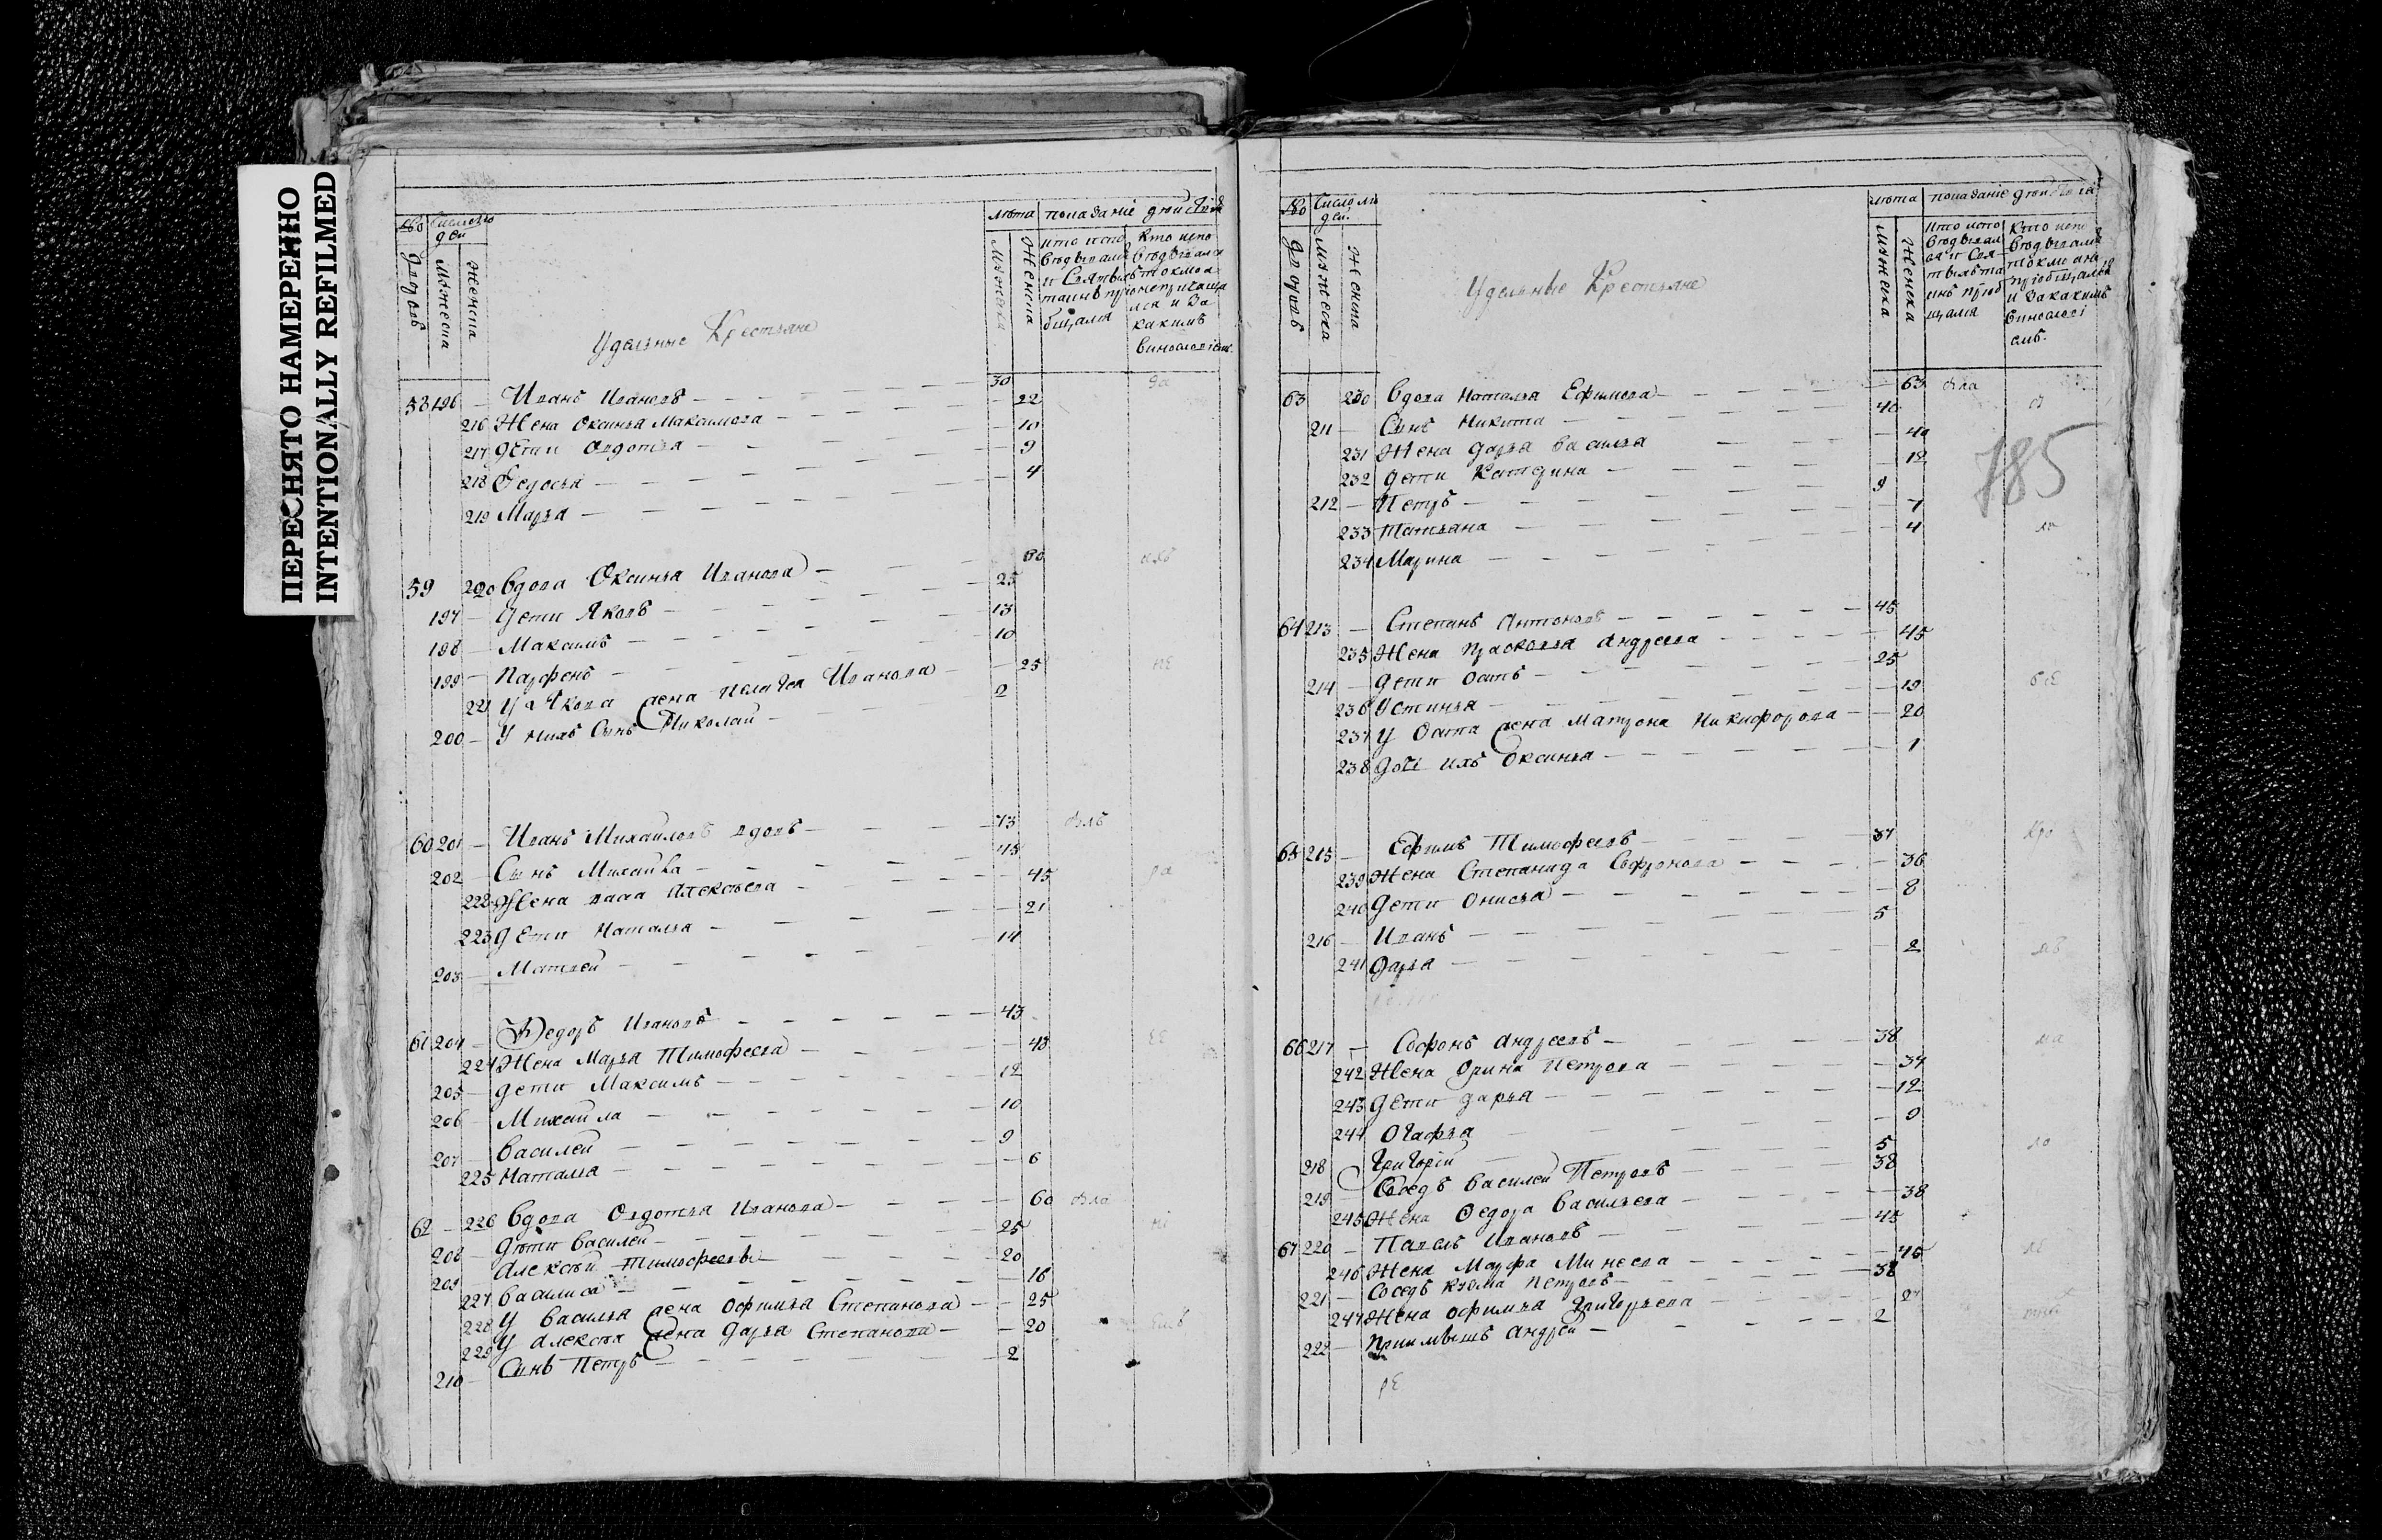 ПЕРЕСНЯТО НАМЕРЕННО
INTENTIONALLY REFILMED
лѣта показаніе дѣйства
дворовъ
мужеска
женска
мужеска
женска
Удельные Крестьяне
58 196 — Иванъ Ивановъ — 30
216 Жена Оксинья Максимова — 22
217 Дети Авдотья — 10
218 Федосья — 9
219 Марья — 4
59 220 Вдова Оксинья Иванова — 80
197 — Дети Яковъ — 25
198 — Максимъ — 13
199 — Парфенъ — 10
221 У Якова жена Пелагея Иванова — 25
200 — У нихъ Сынъ Николай — 2
60 201 — Иванъ Михайловъ вдовъ — 73
202 — Сынъ Михайла — 45
222 Жена Алексеева — 45
223 Дети Наталья — 21
203 — Матвей — 14
61 204 — Федоръ Ивановъ — 43
224 Жена Марья Тимофеева — 43
205 — дети Максимъ — 12
206 — Михайла — 10
207 — Василей — 9
225 Наталья — 6
62 — 226 Вдова Овдотья Иванова — 60
208 — Дѣти Василей — 25
209 — Алексѣй Тимофеевы — 20
227 Василиса — 16
228 У Василья жена Офимья Степанова — 25
229 У Алексея жена Дарья Степанова — 20
210 — Сынъ Петръ — 2
Число лю
дей
лѣта показаніе дѣйства
дворовъ
мужеска
женска
мужеска
женска
Удельные Крестьяне
785
63 230 Вдова Наталья Ефимова — 63
211 — Сынъ Никита — 40
231 Жена Дарья Васильева — 40
232 Дети Катерина — 12
212 — Петръ — 9
233 Татьяна — 7
234 Марина — 4
64 213 — Степанъ Антоновъ — 45
235 Жена Прасковья Андреева — 45
214 — Дети Осипъ — 25
236 Устинья — 19
237 У Осипа жена Матрона Никифорова — 20
238 Дочь ихъ Оксинья — 1
65 215 — Ефимъ Тимофеевъ — 37
239 Жена Степанида Софронова — 36
240 Дети Онисья — 8
216 — Иванъ — 5
241 Дарья — 2
66 217 — Софонъ Андреевъ — 38
242 Жена Орина Петрова — 34
243 Дети Дарья — 12
244 Огафья — 9
218 Григорій — 5
219 — Соседъ Василей Петровъ — 38
245 Жена Федора Васильева — 38
67 220 — Павелъ Ивановъ — 45
246 Жена Марфа Минеева — 45
221 — Соседъ Кузма Петровъ — 38
247 Жена Офимья Григорьева — 27
222 — Приимышъ Андрей — 2